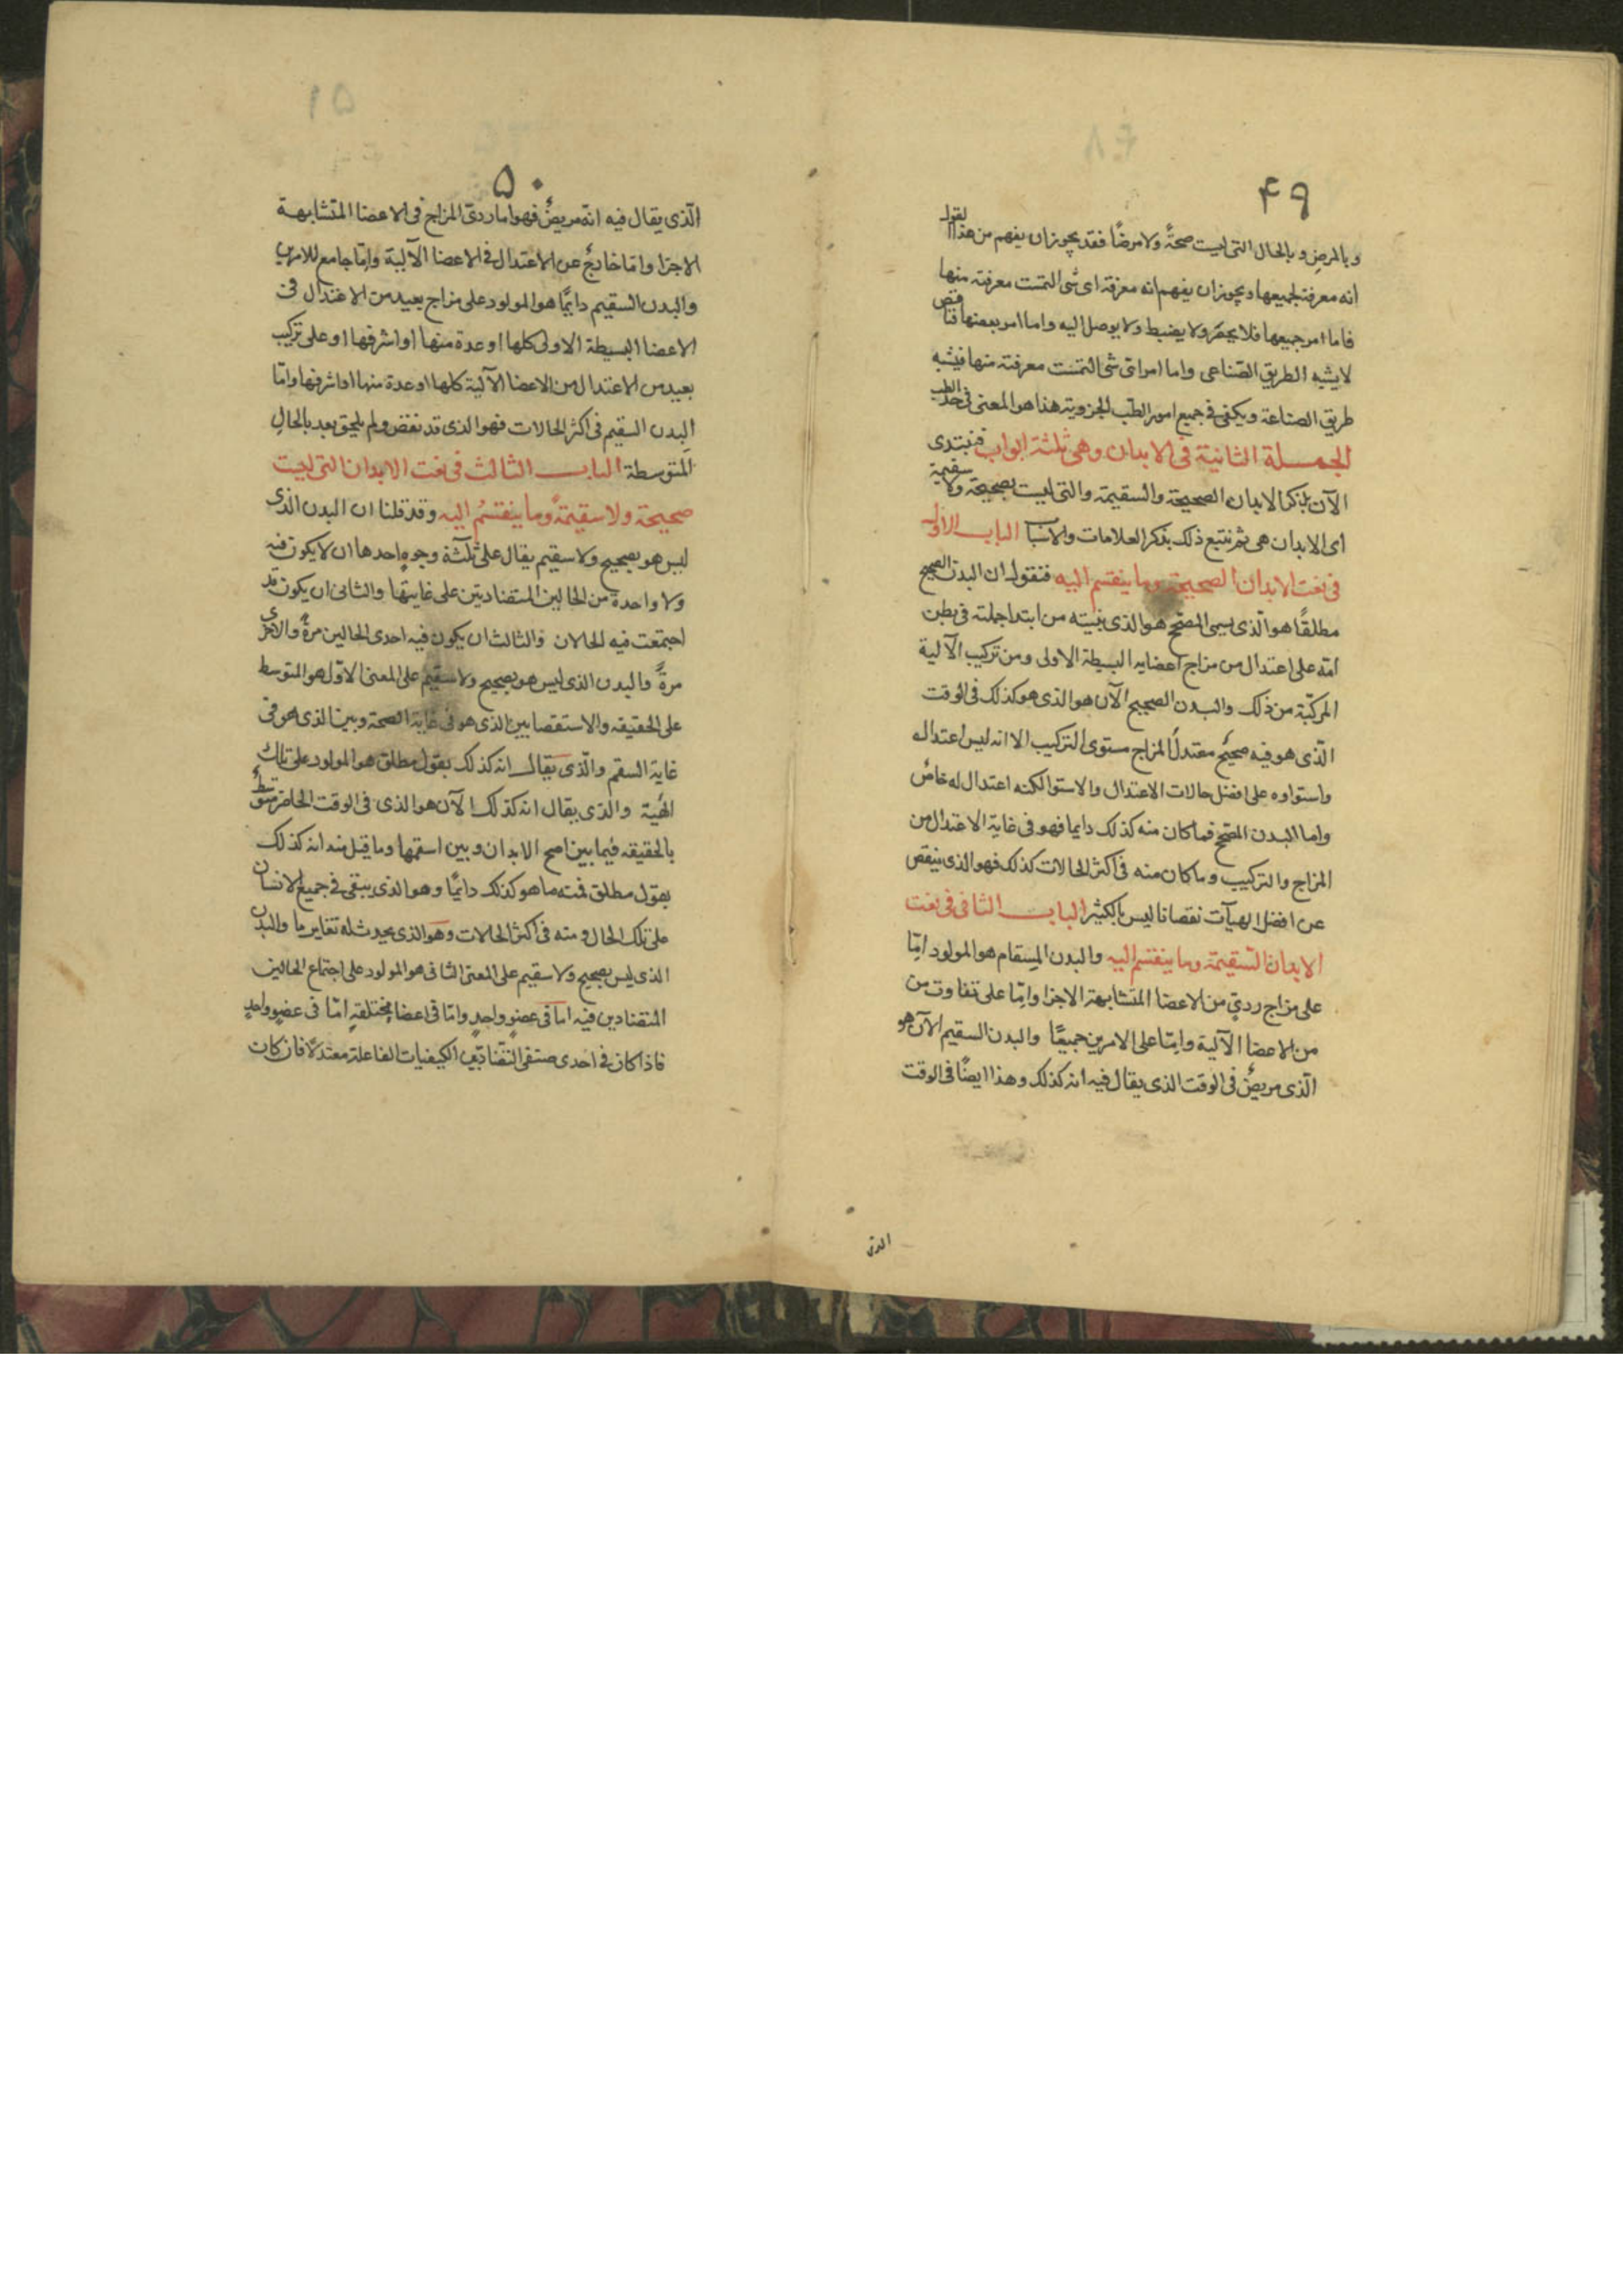 ۴۹
وبالمرض وبالحال التى ليست صحةً ولا مرضًا فقد يجوز ان يفهم من هذا القول
انه معرفة لجميعها ويجوز ان يفهم انه معرفة اى شى التمست معرفته منها
فاما امر جميعها فلا يحصر ولا يضبط ولا يوصل اليه واما امر بعضها فناقص
لا يشبه الطريق الصّناعى واما امر اىّ شى التمست معرفته منها فيشبه
طريق الصناعة ويكفى فى جميع امور الطبّ الجزويه هذا هو المعنى فى حد الطب
الجملة الثانية فى الابدان وهى ثلثة ابواب فنبتدى
الآن بذكر الابدان الصحيحة والسقيمة والتى ليست بصحيحة ولا سقيمة
اى الابدان هى ثم نتبع ذلك بذكر العلامات والاسباب الباب الاول
فى نعت الابدان الصحيحة وما ينقسم اليه فنقول ان البدن الصحيح
مطلقًا هو الّذى يسمى المصحّح هو الذى بنيته من ابتدا جملته فى بطن
امّه على اعتدال من مزاج اعضايه البسيطة الاولى ومن تركيب الآلية
المركّبة من ذلك والبدن الصحيح الآن هو الذى هو كذلك فى الوقت
الّذى هو فيه صحيحٌ معتدلُ المزاج مستوى التركيب الا انه ليس اعتداله
واستواوه على افضل حالات الاعتدال والاستوا لكنه اعتدال له خاصٌ
واما البدن المصّحح فما كان منه كذلك دايما فهو فى غاية الاعتدال من
المزاج والتركيب وما كان منه فى اكثر الحالات كذلك فهو الذى ينقص
عن افضل الهيآت نقصانا ليس بالكثير الباب الثانى فى نعت
الابدان السّقيمة وما ينقسم اليه والبدن المسقام هو المولود امّا
على مزاج ردىّ من الاعضا المتشابهة الاجزا وامّا على تفاوت من
من الاعضا الآلية وامّا على الامرين جميعًا والبدن السقيم الآن هو
الّذى مريضٌ فى الوقت الذى يقال فيه انه كذلك وهذا ايضًا فى الوقت
الذى
۵۰
الّذى يقال فيه انه مريضٌ فهو اما ردىّ المزاج فى الاعضا المتشابهة
الاجزا واما خارجٌ عن الاعتدال فى الاعضا الآلية وامّا جامع للامرين
والبدن السقيم دايمًا هو المولود على مزاج بعيد من الاعتدال فى
الاعضا البسيطة الاولى كلها او عدة منها او اشرفها او على تركيب
بعيد من الاعتدال من الاعضا الآلية كلها او عدة منها او اشرفها وامّا
البدن السقيم فى اكثر الحالات فهو الذى قد نقض ولم يلحق بعد بالحال
المتوسطة الباب الثالث فى نعت الابدان التى ليست
صحيحة ولا سقيمةً وما ينقسمُ اليه وقد قلنا ان البدن الذى
ليس هو بصحيح ولا سقيم يقال على ثلثة وجوهٍ احدها ان لا يكون فيه
ولا واحدة من الحالين المتضادتين على غايتها والثانى ان يكون قد
اجتمعت فيه الحالان والثالث ان يكون فيه احدى الحالين مرةً والاخرى
مرةً والبدن الذى ليس هو بصحيح ولا سقيم على المعنى الاول هو المتوسط
على الحقيقه والاستقصا بين الذى هو فى غاية الصحة وبين الذى هو فى
غاية السقم والّذى يقال انه كذلك بقول مطلق هو المولود على تلك
الهيية والذى يقال انه كذلك الآن هو الذى فى الوقت الحاضر متوسّطٌ
بالحقيقه فيما بين اصح الابدان وبين اسقمها وما قيل منه انه كذلك
بقول مطلق فمنه ما هو كذلك دايمًا وهو الذى يبقى فى جميع الانسان
على تلك الحال ومنه فى اكثر الحالات وهو الذى يحدث له تغاير ما والبدن
الذى ليس بصحيح ولا سقيم على المعنى الثانى هو المولود على اجتماع الحالين
المتضادين فيه اما فى عضوٍ واحدٍ وامّا فى اعضا مختلفةٍ امّا فى عضوٍ واحدٍ
فاذا كان فى احدى صنفى التضاد بين الكيفيات الفاعلة معتدلًا فان كان